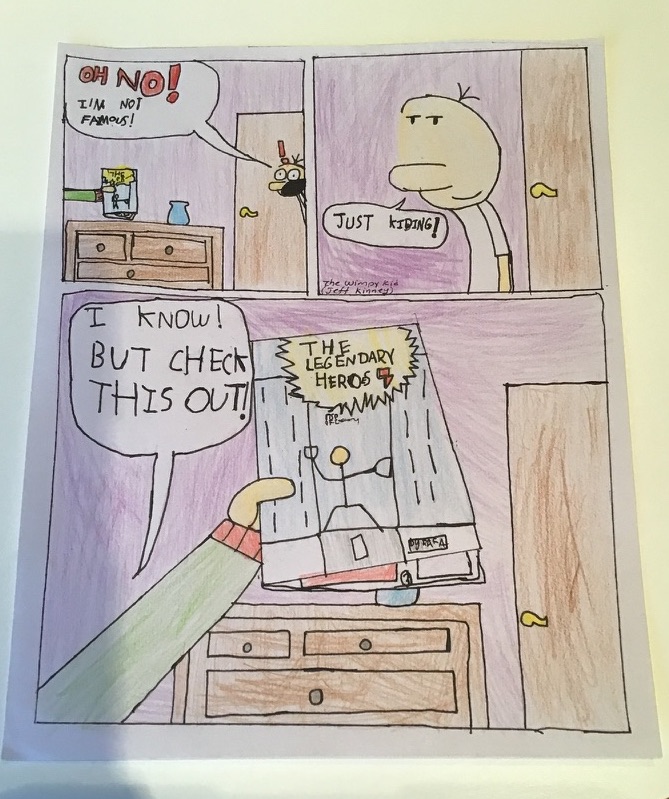 OH NO!
I'M NOT
FAMOUS!
THE
JUST KIDING!
The wimpy kid
(Jeff Kinney)
I KNOW!
BUT CHECK
THIS OUT!
THE
LEGENDARY
HEROS